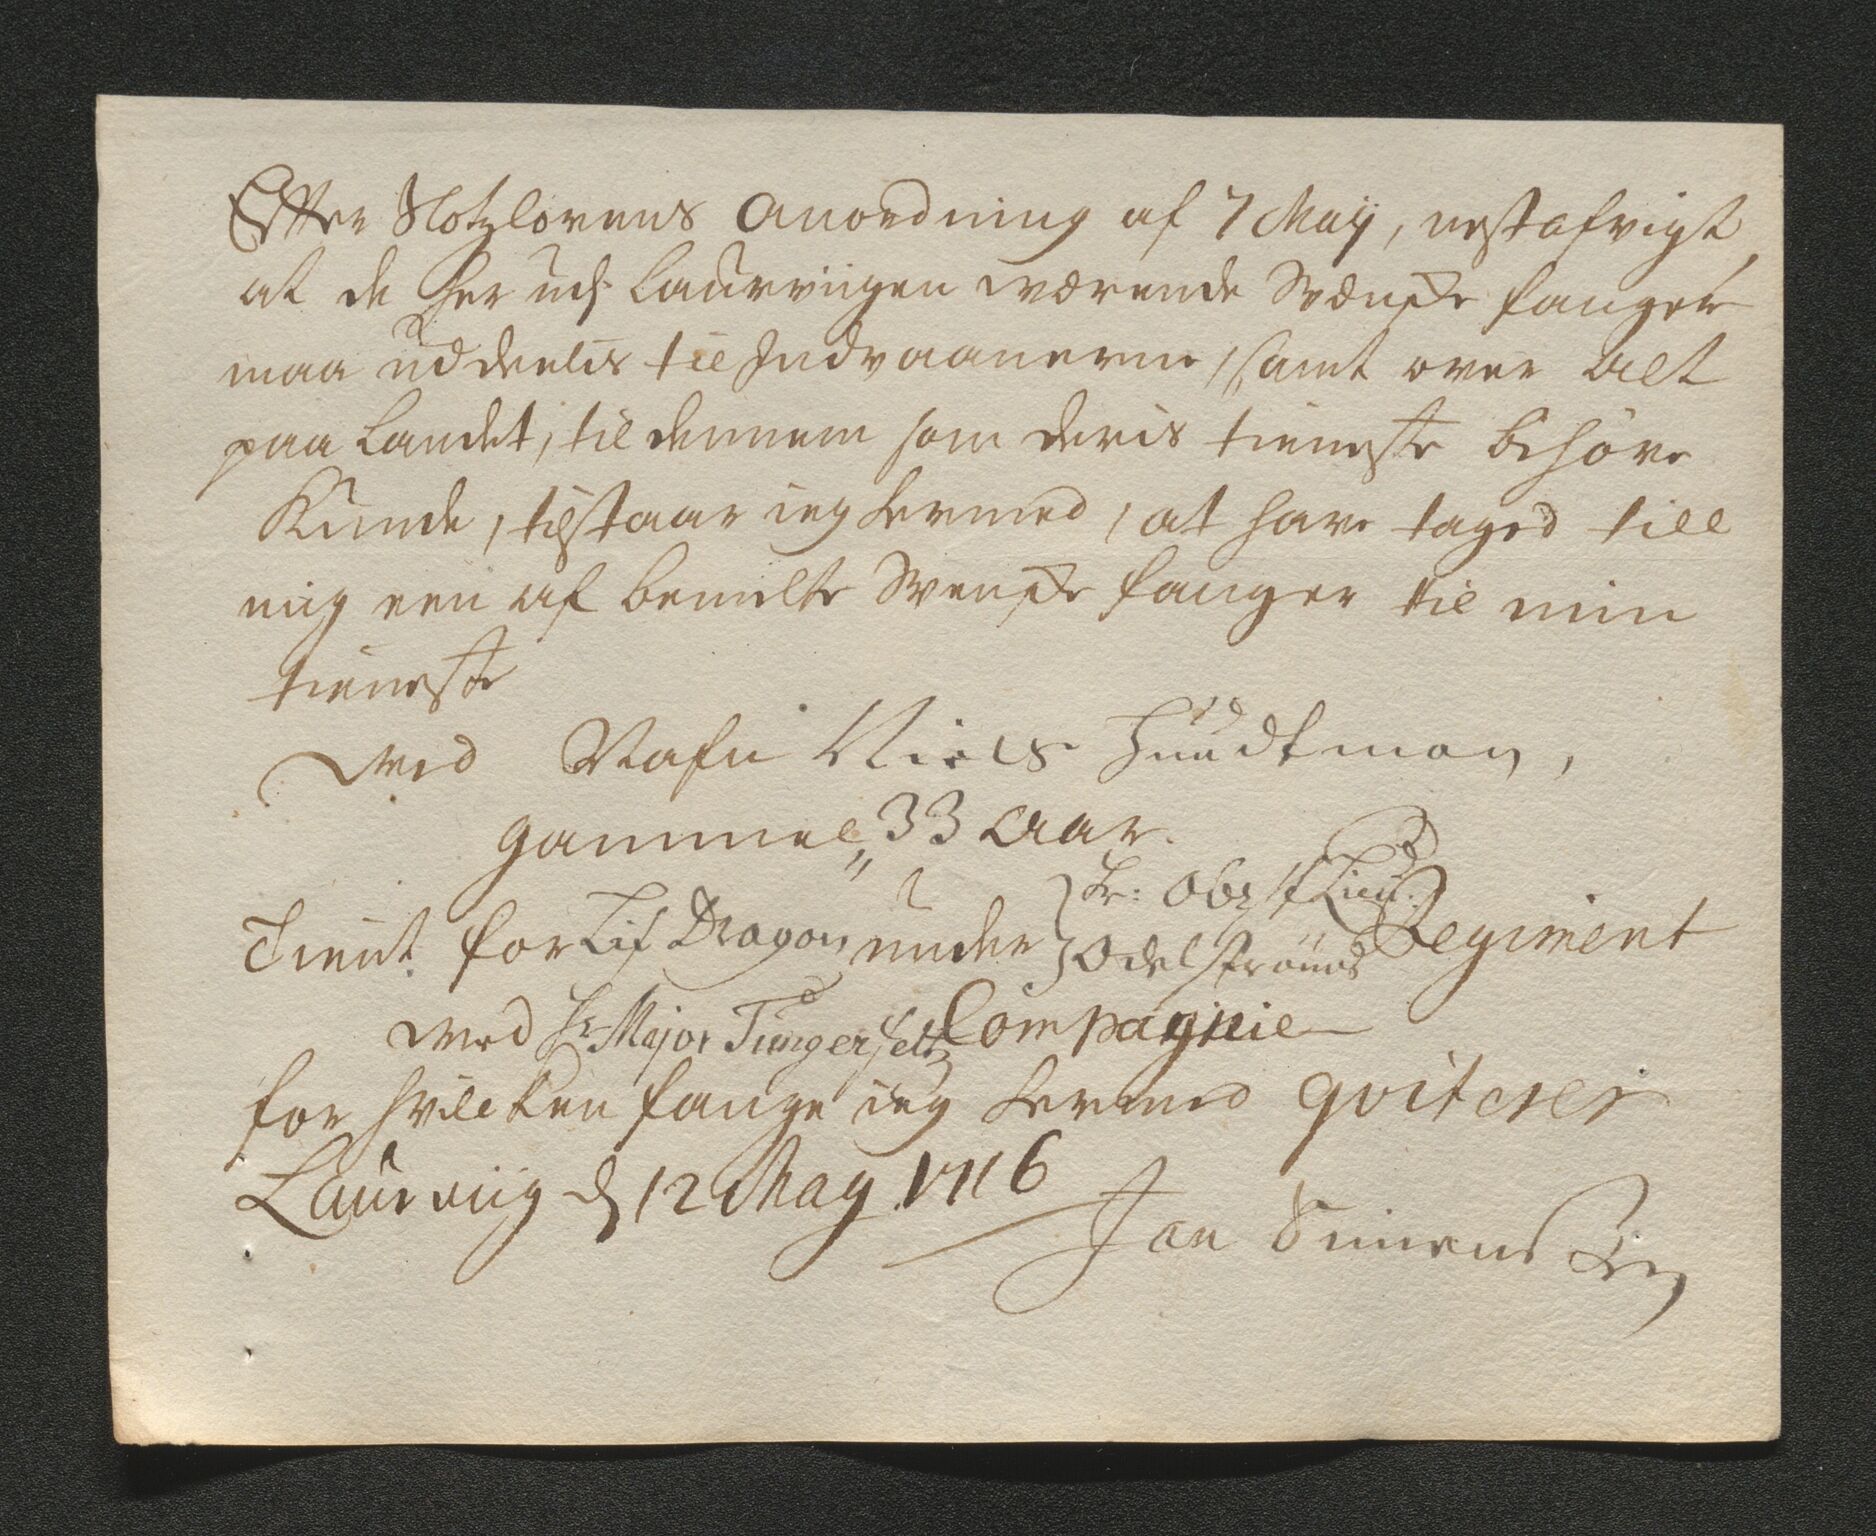 Efter Slotzlovens Anordning af 7 Maÿ, nestafvigt,
at de her udj Laurviigen værende Svænske fanger
maa uddeelis til Indvaanerne, samt over alt
paa Landet, til dennem som deris tieneste behöve
Kunde, tilstaar ieg hermed, at have taged till
mig een af bemelte Svenske fanger til min
tieneste
Med Nafn Niels Hundtman,
gammel 33 Aar.
Tient for Lif Dragon under Hr: Obrist Lieut:
Odelströmds Regiment
Med Hr Major Tungerfelts Compagnie
for hvilcken fange ieg hermed qviterer
Laurviig d 12 May 1716
Jan